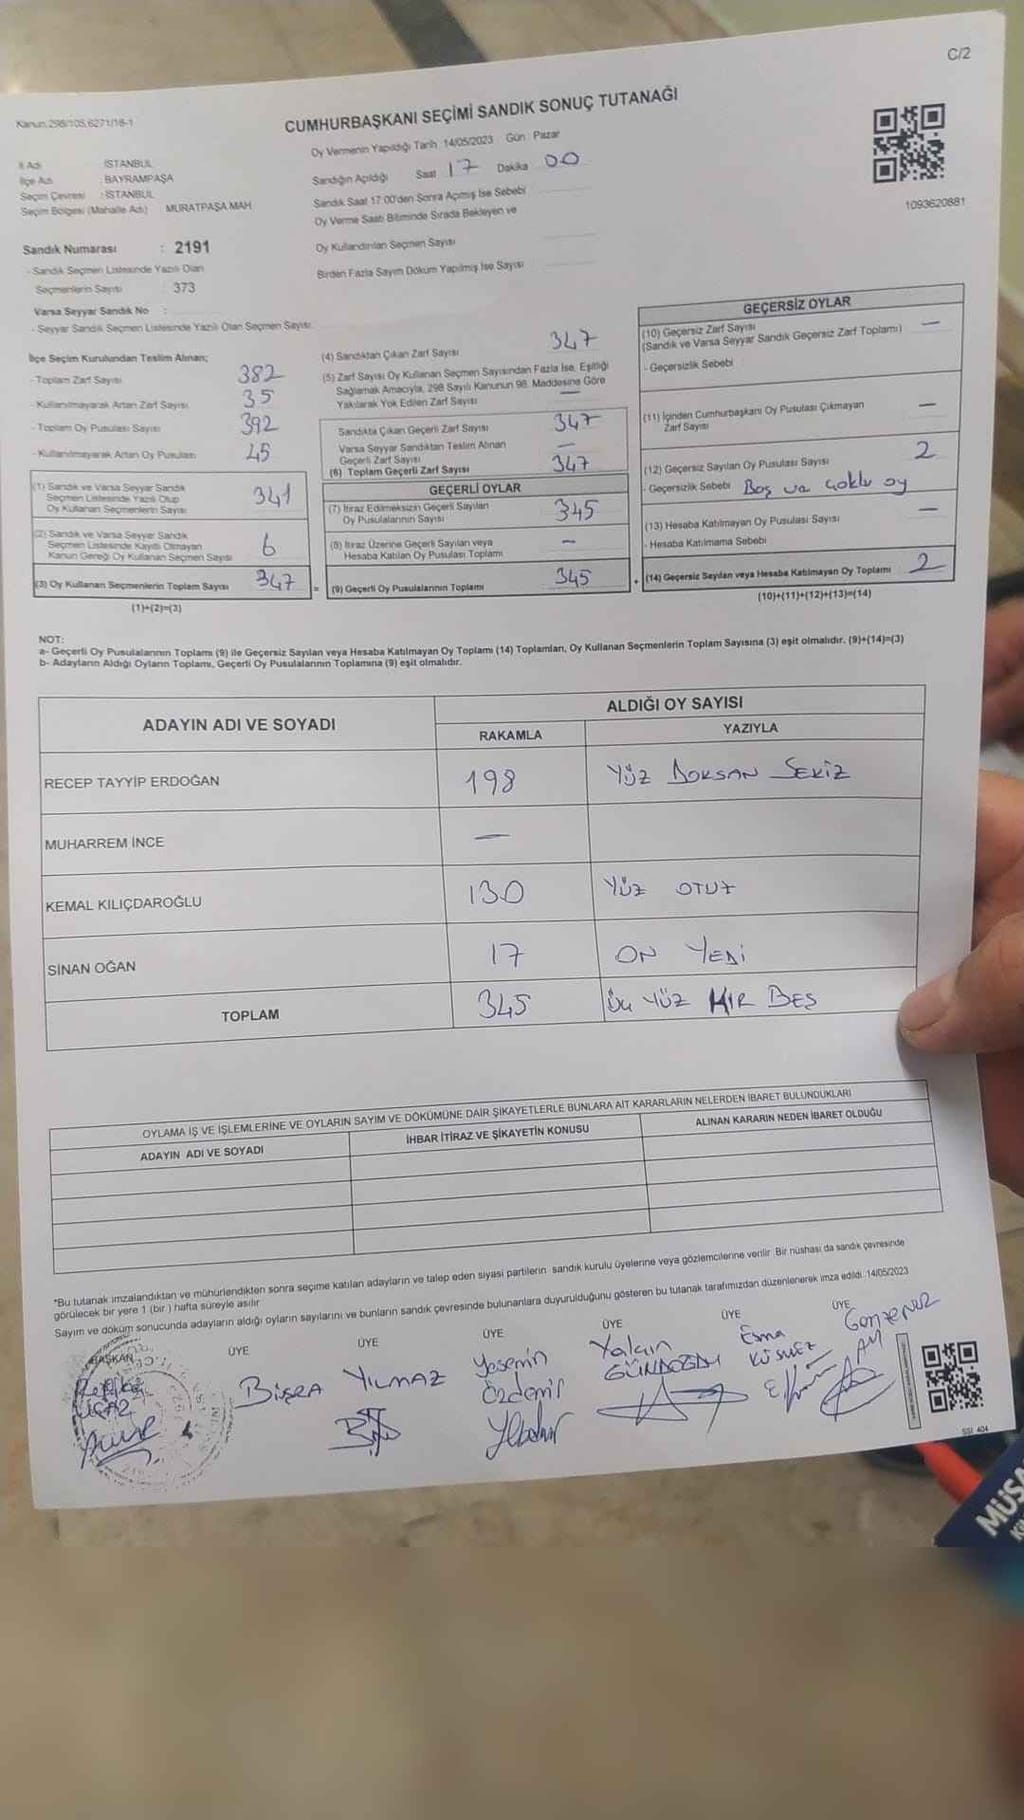 C/2
Kanun:298/105,6271/18-1
CUMHURBAŞKANI SEÇİMİ SANDIK SONUÇ TUTANAĞI
Oy Vermenin Yapıldığı Tarih 14/05/2023 Gün Pazar
İl Adı İSTANBUL
İlçe Adı : BAYRAMPAŞA
Seçim Çevresi : İSTANBUL
Seçim Bölgesi (Mahalle Adı) MURATPAŞA MAH
Sandığın Açıldığı Saat 17 Dakika 00
Sandık Saat 17:00'den Sonra Açılmış İse Sebebi
Oy Verme Saati Bitiminde Sırada Bekleyen ve
Oy Kullandırılan Seçmen Sayısı
Birden Fazla Sayım Döküm Yapılmış İse Sayısı
1093620881
Sandık Numarası : 2191
- Sandık Seçmen Listesinde Yazılı Olan
Seçmenlerin Sayısı : 373
Varsa Seyyar Sandık No :
- Seyyar Sandık Seçmen Listesinde Yazılı Olan Seçmen Sayısı:
İlçe Seçim Kurulundan Teslim Alınan;
- Toplam Zarf Sayısı 382
- Kullanılmayarak Artan Zarf Sayısı 35
- Toplam Oy Pusulası Sayısı 392
- Kullanılmayarak Artan Oy Pusulası 45
(1) Sandık ve Varsa Seyyar Sandık
Seçmen Listesinde Yazılı Olup
Oy Kullanan Seçmenlerin Sayısı 341
(2) Sandık ve Varsa Seyyar Sandık
Seçmen Listesinde Kayıtlı Olmayan
Kanun Gereği Oy Kullanan Seçmen Sayısı 6
(3) Oy Kullanan Seçmenlerin Toplam Sayısı 347 =
(1)+(2)=(3)
(4) Sandıktan Çıkan Zarf Sayısı 347
(5) Zarf Sayısı Oy Kullanan Seçmen Sayısından Fazla İse, Eşitliği
Sağlamak Amacıyla, 298 Sayılı Kanunun 98. Maddesine Göre
Yakılarak Yok Edilen Zarf Sayısı —
Sandıkta Çıkan Geçerli Zarf Sayısı 347
Varsa Seyyar Sandıktan Teslim Alınan
Geçerli Zarf Sayısı —
(6) Toplam Geçerli Zarf Sayısı 347
GEÇERLİ OYLAR
(7) İtiraz Edilmeksizin Geçerli Sayılan
Oy Pusulalarının Sayısı 345
(8) İtiraz Üzerine Geçerli Sayılan veya
Hesaba Katılan Oy Pusulası Toplamı —
(9) Geçerli Oy Pusulalarının Toplamı 345 +
GEÇERSİZ OYLAR
(10) Geçersiz Zarf Sayısı —
(Sandık ve Varsa Seyyar Sandık Geçersiz Zarf Toplamı)
- Geçersizlik Sebebi
(11) İçinden Cumhurbaşkanı Oy Pusulası Çıkmayan —
Zarf Sayısı
(12) Geçersiz Sayılan Oy Pusulası Sayısı 2
- Geçersizlik Sebebi Boş ve çoklu oy
(13) Hesaba Katılmayan Oy Pusulası Sayısı —
- Hesaba Katılmama Sebebi
(14) Geçersiz Sayılan veya Hesaba Katılmayan Oy Toplamı 2
(10)+(11)+(12)+(13)=(14)
NOT:
a- Geçerli Oy Pusulalarının Toplamı (9) ile Geçersiz Sayılan veya Hesaba Katılmayan Oy Toplamı (14) Toplamları, Oy Kullanan Seçmenlerin Toplam Sayısına (3) eşit olmalıdır. (9)+(14)=(3)
b- Adayların Aldığı Oyların Toplamı, Geçerli Oy Pusulalarının Toplamına (9) eşit olmalıdır.
ADAYIN ADI VE SOYADI
ALDIĞI OY SAYISI
RAKAMLA YAZIYLA
RECEP TAYYİP ERDOĞAN 198 YÜZ DOKSAN SEKİZ
MUHARREM İNCE —
KEMAL KILIÇDAROĞLU 130 YÜZ OTUZ
SİNAN OĞAN 17 ON YEDİ
TOPLAM 345 ÜÇ YÜZ KIR BEŞ
OYLAMA İŞ VE İŞLEMLERİNE VE OYLARIN SAYIM VE DÖKÜMÜNE DAİR ŞİKAYETLERLE BUNLARA AİT KARARLARIN NELERDEN İBARET BULUNDUKLARI
ADAYIN ADI VE SOYADI İHBAR İTİRAZ VE ŞİKAYETİN KONUSU ALINAN KARARIN NEDEN İBARET OLDUĞU
*Bu tutanak imzalandıktan ve mühürlendikten sonra seçime katılan adayların ve talep eden siyasi partilerin sandık kurulu üyelerine veya gözlemcilerine verilir. Bir nüshası da sandık çevresinde
görülecek bir yere 1 (bir) hafta süreyle asılır
Sayım ve döküm sonucunda adayların aldığı oyların sayılarını ve bunların sandık çevresinde bulunanlara duyurulduğunu gösteren bu tutanak tarafımızdan düzenlenerek imza edildi. 14/05/2023
BAŞKAN ÜYE ÜYE ÜYE ÜYE ÜYE ÜYE
BÜŞRA YILMAZ
Yasemin Özdemir
Yalçın GÜNDOĞDU
Esma
Gonzenur
AY
SSI 404
MÜSA